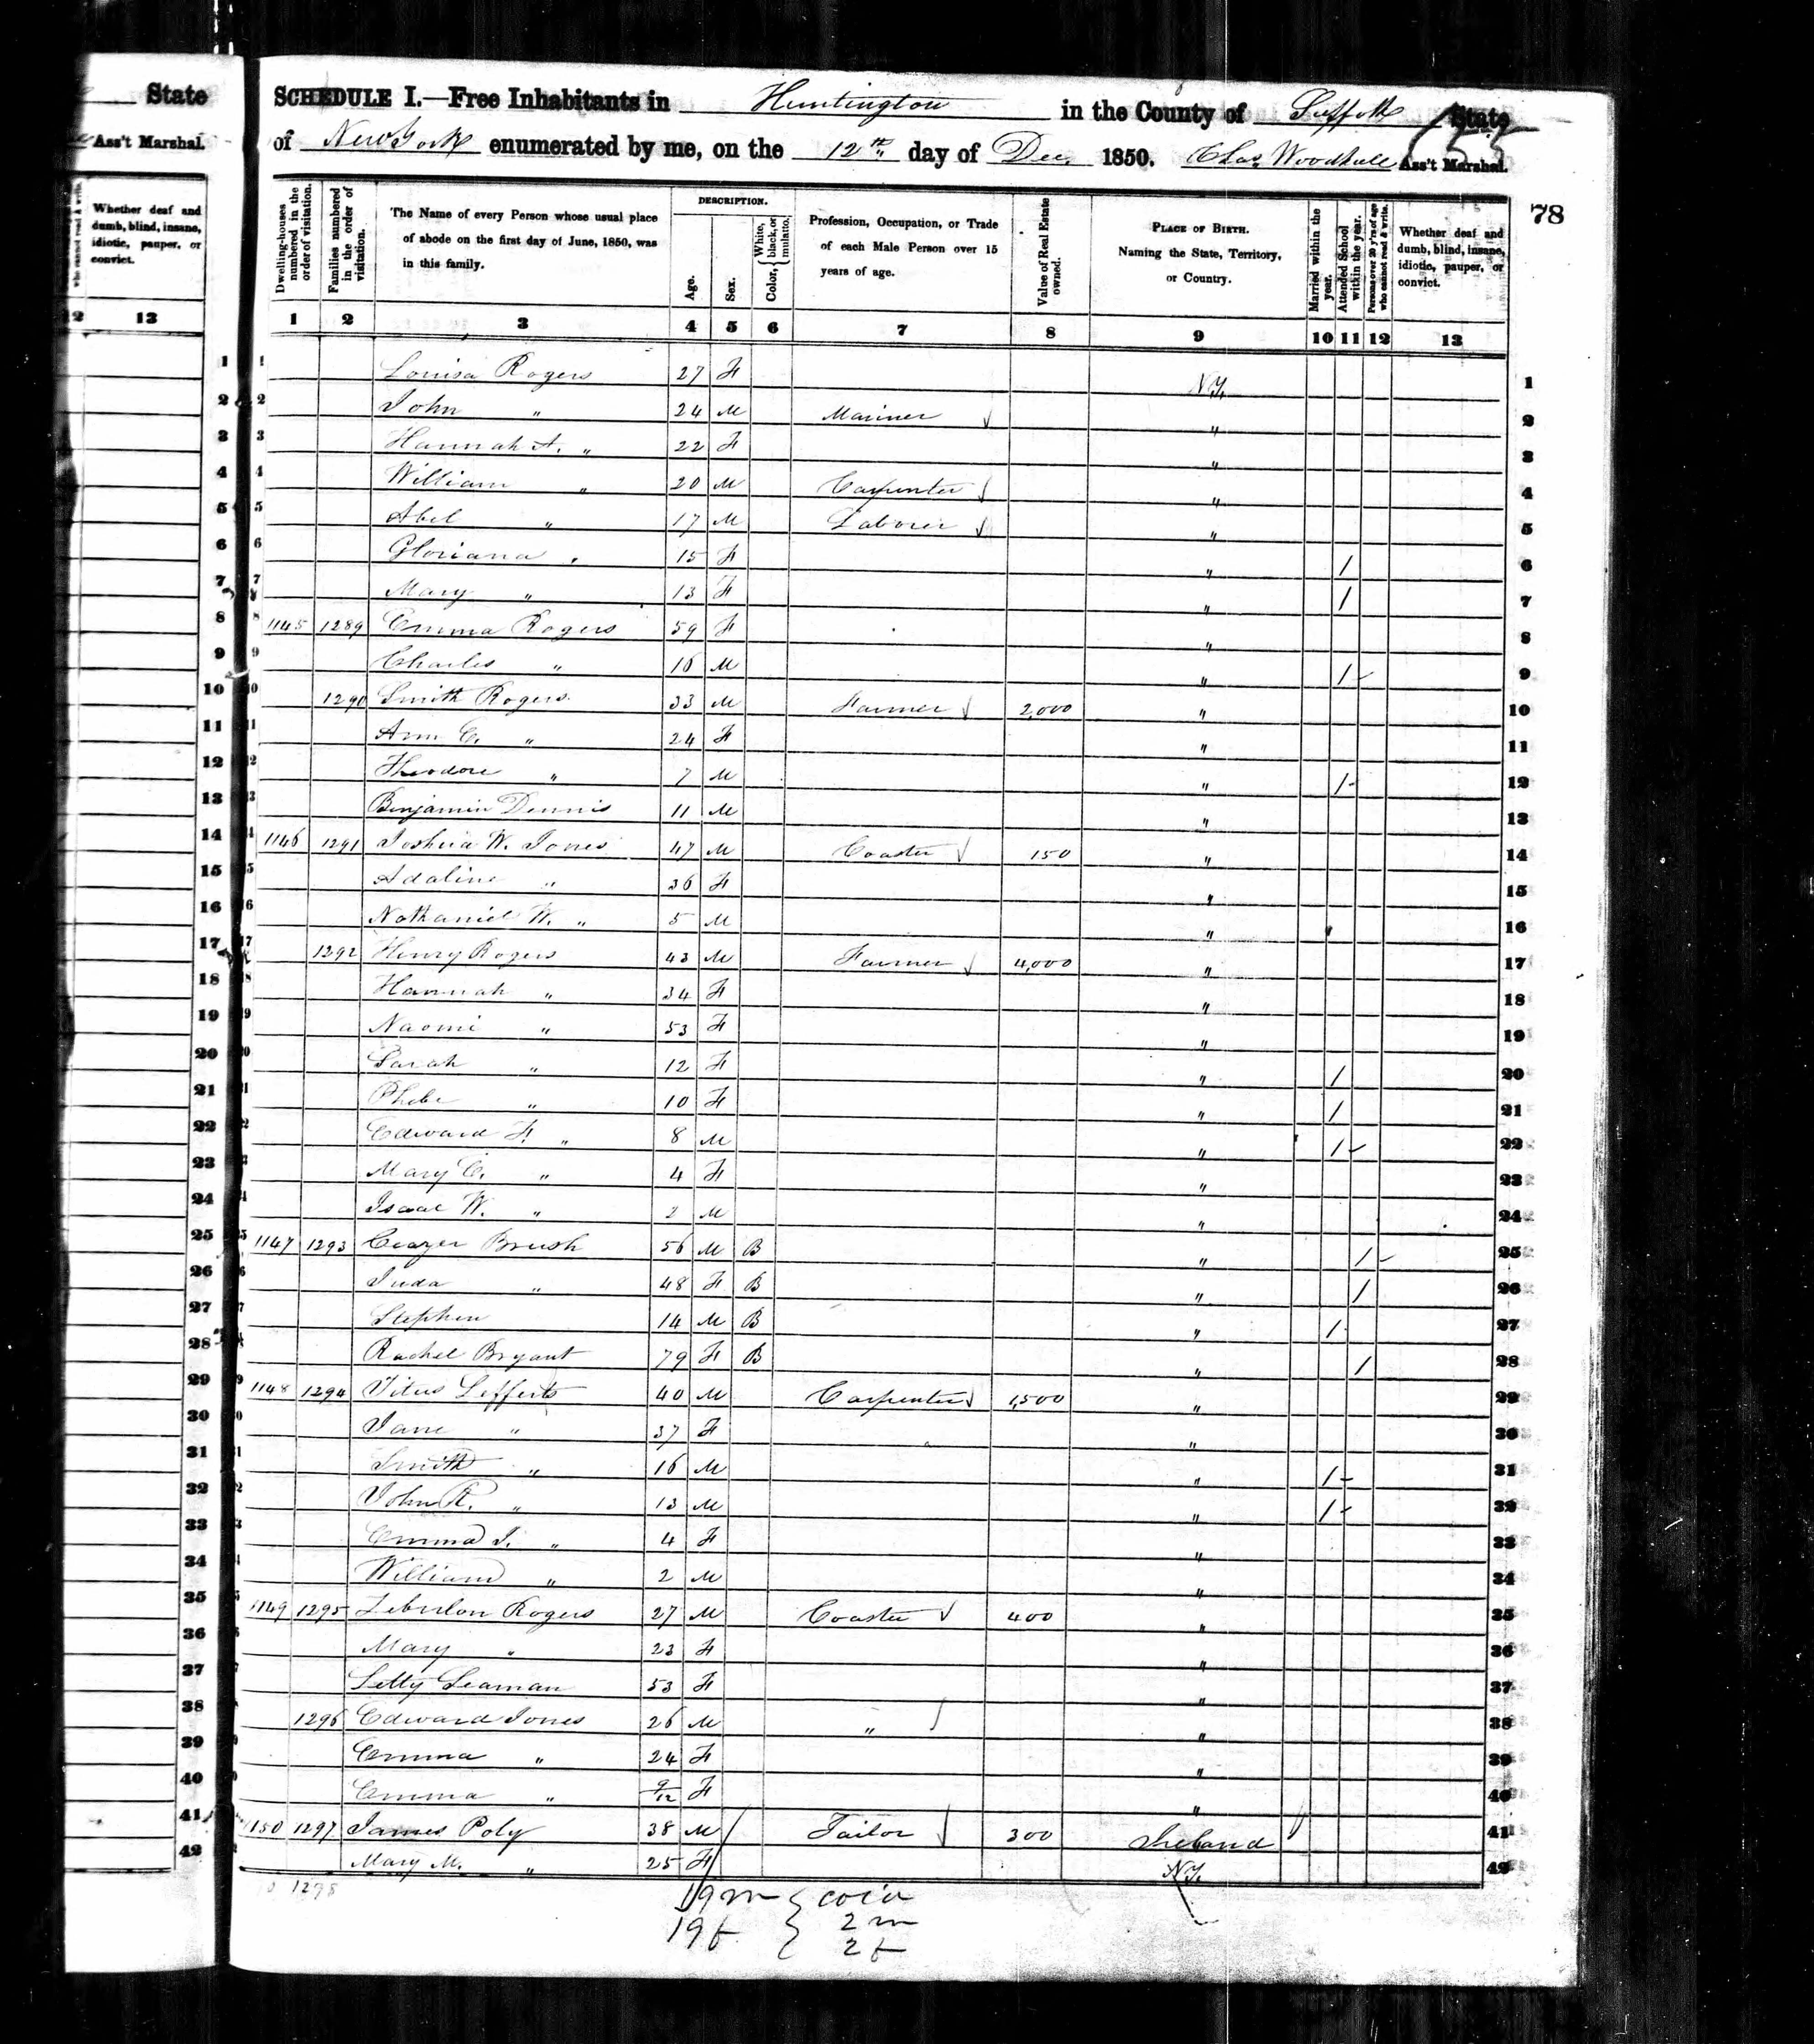 State
Ass't Marshal.
Whether deaf and
dumb, blind, insane,
idiotic, pauper, or
convict.
13
SCHEDULE I.—Free Inhabitants in Huntington in the County of Suffolk State
of New York enumerated by me, on the 12th day of Dec. 1850. Chas Woodhull Ass't Marshal.
78
Dwelling-houses numbered in the order of visitation.
Families numbered in the order of visitation.
The Name of every Person whose usual place of abode on the first day of June, 1850, was in this family.
DESCRIPTION.
Age.
Sex.
Color, { White, black, or mulatto.
Profession, Occupation, or Trade of each Male Person over 15 years of age.
Value of Real Estate owned.
PLACE OF BIRTH. Naming the State, Territory, or Country.
Married within the year.
Attended School within the year.
Persons over 20 y'rs of age who cannot read & write.
Whether deaf and dumb, blind, insane, idiotic, pauper, or convict.
1 2 3 4 5 6 7 8 9 10 11 12 13
1 Louisa Rogers 27 F N.Y. 1
2 John " 24 M Mariner " 2
3 Hannah A. " 22 F " 3
4 William " 20 M Carpenter " 4
5 Abel " 17 M Laborer " 5
6 Gloriana " 15 F " / 6
7 Mary " 13 F " / 7
8 1145 1289 Emma Rogers 59 F " 8
9 Charles " 16 M " / 9
10 1290 Smith Rogers 33 M Farmer 2,000 " 10
11 Ann E. " 24 F " 11
12 Theodore " 7 M " / 12
13 Benjamin Dennis 11 M " 13
14 1146 1291 Joshua W. Jones 47 M Coaster 150 " 14
15 Adaline " 36 F " 15
16 Nathaniel W. " 5 M " 16
17 1292 Henry Rogers 43 M Farmer 4,000 " 17
18 Hannah " 34 F " 18
19 Naomi " 53 F " 19
20 Sarah " 12 F " / 20
21 Phebe " 10 F " / 21
22 Edward F. " 8 M " / 22
23 Mary E. " 4 F " 23
24 Isaac W. " 2 M " 24
25 1147 1293 Ceazer Brush 56 M B " / 25
26 Juda " 48 F B " / 26
27 Stephen 14 M B " / 27
28 Rachel Bryant 79 F B " / 28
29 1148 1294 Titus Lefferts 40 M Carpenter 1,500 " 29
30 Jane " 37 F " 30
31 Smith " 16 M " / 31
32 John R. " 13 M " / 32
33 Emma J. " 4 F " 33
34 William " 2 M " 34
35 1149 1295 Zebulon Rogers 27 M Coaster 400 " 35
36 Mary " 23 F " 36
37 Letty Seaman 53 F " 37
38 1296 Edward Jones 26 M " " 38
39 Emma " 24 F " 39
40 Emma " 9/12 F " 40
41 1150 1297 James Poly 38 M Tailor 300 Ireland 41
42 Mary M. " 25 F N.Y. 42
1298
19 m } col'd
19 f } 2 m
2 f